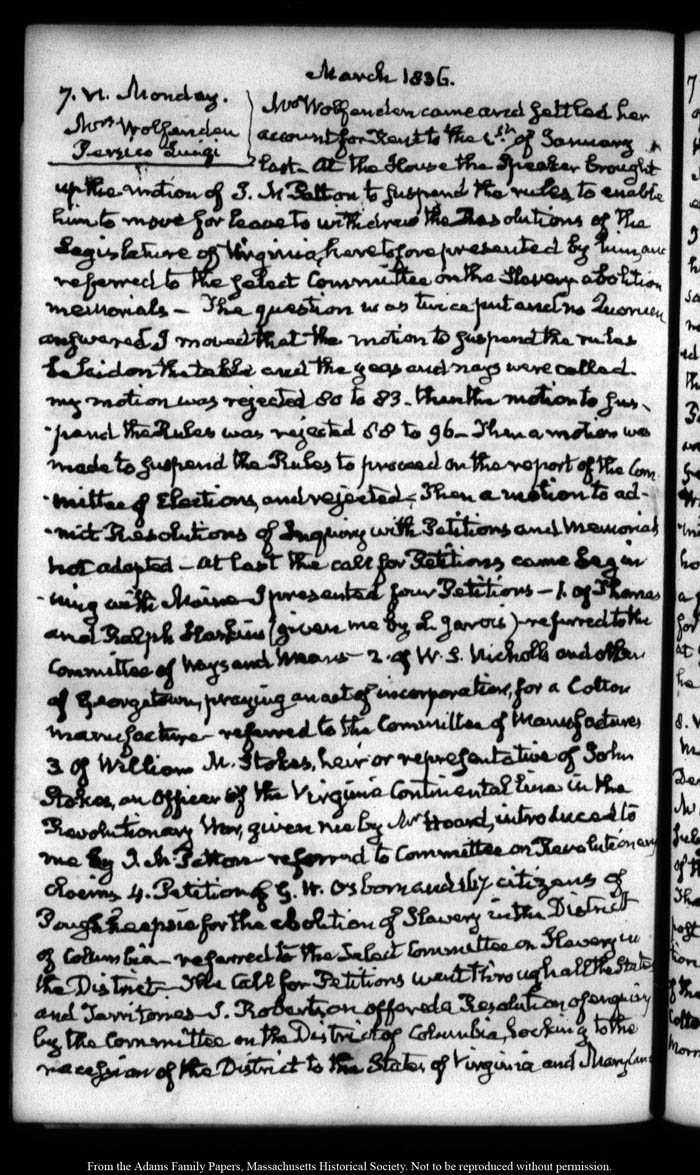 March 1836.
7. VI. Monday.
Mrs Wolfenden
Persico Luigi
Mrs Wolfenden came and settled her
account for Rent to the 6th of January
last. At the House the Speaker brought
up the motion of J. M Patton to suspend the rules to enable
him to move for leave to withdraw the Resolutions of the
Legislature of Virginia, heretofore presented by him, and
referred to the select Committee on the Slavery abolition
memorials – The question was twice put and no Quorum
answered, I moved that the motion to suspend the rules
be laid on the table and the yeas and nays were called
my motion was rejected 80 to 83. then the motion to sus-
-pend the Rules was rejected 88 to 96 – Then a motion was
made to suspend the Rules to proceed on the report of the Com
-mittee of Elections, and rejected, Then a motion to ad-
-mit Resolutions of Inquiry with Petitions and Memorials
not adopted – At last the call for Petitions came begin
-ning with Maine – I presented four Petitions – 1. of Thomas
and Ralph Haskins (given me by L. Jarvis) – referred to the
Committee of Ways and Means – 2. of W. S. Nicholls and others
of Georgetown, praying an act of incorporation, for a Cotton
manufacture – referred to the Committee of Manufactures
3 of William M. Stokes, heir or representative of John
Stokes, an Officer of the Virginia Continental line in the
Revolutionary War, given me by Mr Hoard, introduced to
me by J. M. Patton – referred to Committee on Revolutionary
claims 4. Petition of G. W. Osborn and 167 citizens of
Poughkeepsie for the abolition of Slavery in the District
of Columbia – referred to the Select Committee on Slavery in
the District – The Call for Petitions went through all the States
and Territories – J. Robertson offered a Resolution of enquiry
by the Committee on the District of Columbia, looking to the
recession of the District to the States of Virginia and Maryland
From the Adams Family Papers, Massachusetts Historical Society. Not to be reproduced without permission.